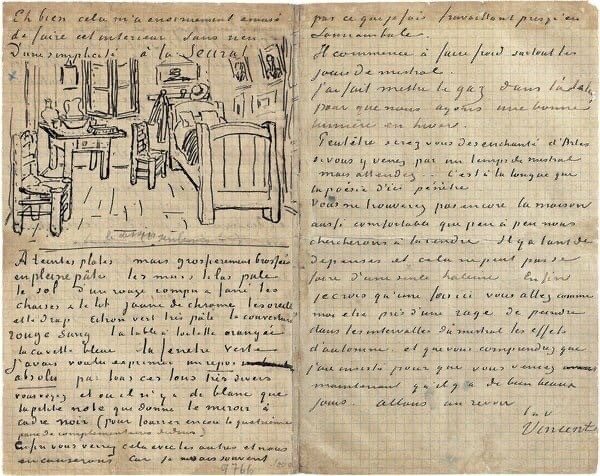 Eh bien cela m'a enormement amusé
de faire cet interieur sans rien
D'une simplicité à la Seurat
A teintes plates mais grossierement brossées
en pleine pâte les murs lilas pale
le sol d'un rouge rompu & fané les
chaises & le lit jaune de chrome les oreillers
et le drap citron vert très pâle la couverture
rouge sang la table à toilette orangée
la cuvette bleue la fenetre verte
J'avais voulu exprimer un repos
absolu par tous ces tons très divers
vous voyez et où il n'y a de blanc que
la petite note que donne le miroir à
cadre noir (pour fourrer encore la quatrième
paire de complementaires dedans)
Enfin vous verrez cela avec les autres et nous
en causerons car je ne sais souvent
9766
pas ce que je fais travaillant presqu'en
somnambule.
Il commence à faire froid surtout les
jours de mistral.
j'ai fait mettre le gaz dans l'atelier
pour que nous ayons une bonne
lumière en hiver.
Peutêtre serez vous desenchanté d'Arles
si vous y venez par un temps de mistral
mais attendez... C'est à la longue que
la poésie d'ici pénètre
vous ne trouverez pas encore la maison
aussi comfortable que peu à peu nous
chercherons à la rendre Il y a tant de
depenses et cela ne peut pas se
faire d'une seule haleine Enfin
je crois qu'une fois ici vous allez comme
moi etre pris d'une rage de peindre
dans les intervalles du mistral les effets
d'automne et que vous comprendrez que
j'ai insisté pour que vous veniez
maintenant qu'il y a de bien beaux
jours allons au revoir
t.à.v.
Vincent